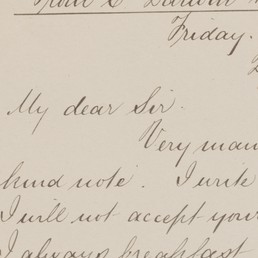 Friday.
My dear Sir.
Very man
kind note. I write
I will not accept your
I always breakfast